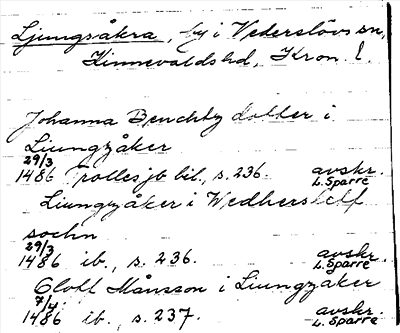 Ljungsåkra, by i Vederslövs sn,
Kinnevalds hd, Kron. l.
Johanna Benchtz dotter i
Liungzåker
29/3
1486 Rollesjb bil., s. 236. avskr.
L. Sparre
Liungzåker i Wedhersleff
sochn
29/3
1486 ib., s. 236. avskr.
L. Sparre
Oloff Månsson i Liungzåker
7/4
1486 ib. s. 237. avskr.
L. Sparre